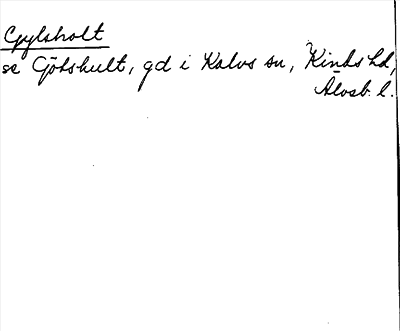 Gylsholt
se Götshult, gd i Kalvs sn, Kinds hd,
Älvsb. l.